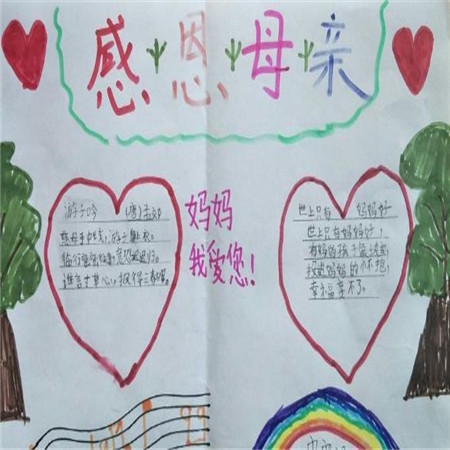 感恩母亲
游子吟 (唐)孟郊
慈母手中线,游子身上衣。
临行密密缝,意恐迟迟归。
谁言寸草心,报得三春晖。
妈妈
我爱您!
世上只有 妈妈好
世上只有妈妈好,
有妈的孩子像块宝,
投进妈妈的怀抱,
幸福享不了。